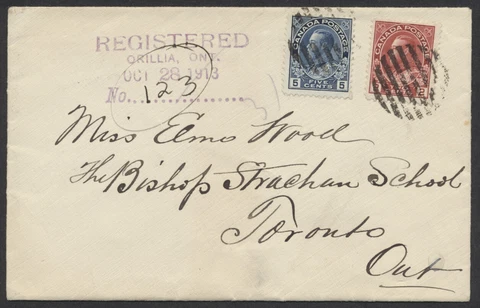 REGISTERED
ORILLIA, ONT.
OCT 28 1913
No. 123
CANADA POSTAGE
5 FIVE CENTS 5
CANADA POSTAGE
2
Miss Elma Wood
The Bishop Strachan School
Toronto
Ont